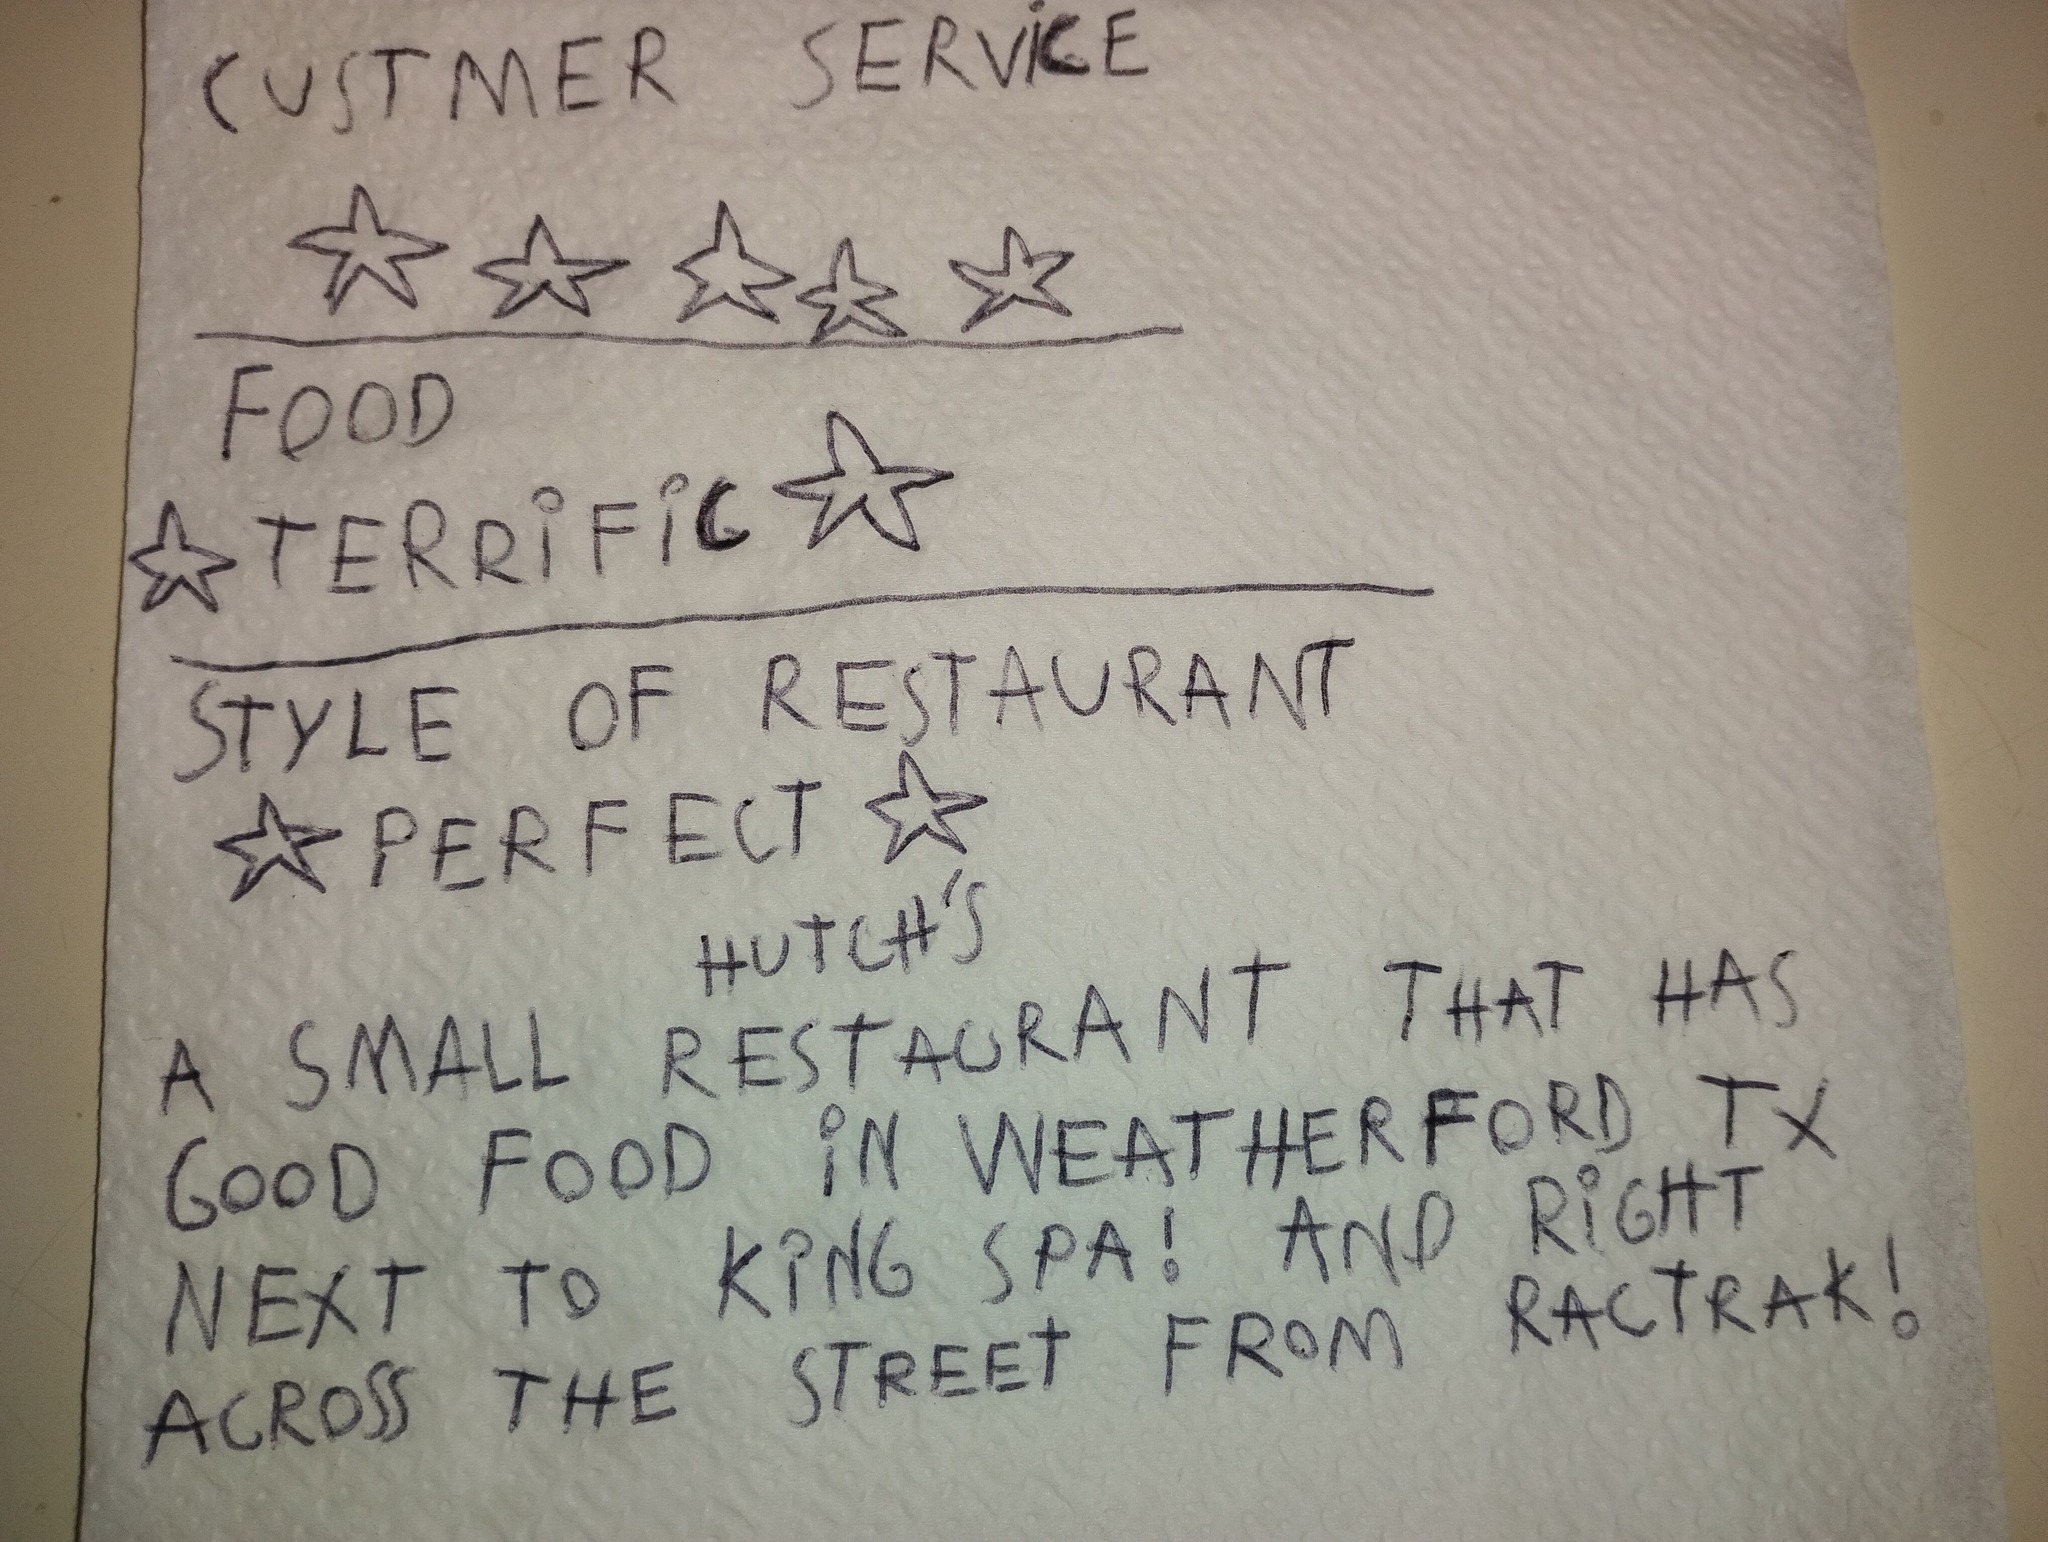 CUSTMER SERVICE
FOOD
TERRIFIC
STYLE OF RESTAURANT
PERFECT
HUTCH'S
A SMALL RESTAURANT THAT HAS
GOOD FOOD IN WEATHERFORD TX
NEXT TO KING SPA! AND RIGHT
ACROSS THE STREET FROM RACTRAK!